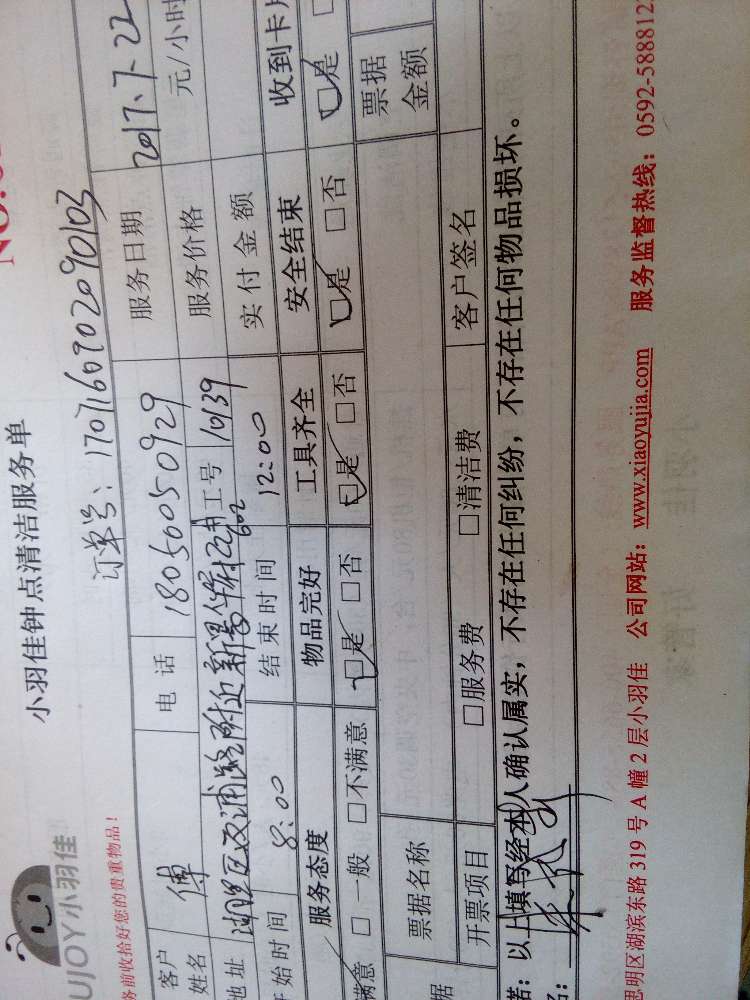 UJOY小羽佳
小羽佳钟点清洁服务单
务前收拾好您的贵重物品!
订单号: 1707160902090103
NO:
客户姓名 傅 电话 18050050929 服务日期 2017.7.22
地址 附近 工号 10139 服务价格 元/小时
开始时间 8:00 结束时间 12:00 实付金额
服务态度 物品完好 工具齐全 安全结束 收到卡片
满意 □一般 □不满意 □是 □否 □是 □否 □是 □否 □是
票据名称 票据金额
据 开票项目 □服务费 □清洁费 客户签名
诺: 以上填写经本人确认属实,不存在任何纠纷,不存在任何物品损坏。
思明区湖滨东路 319 号 A 幢 2 层小羽佳 公司网站: www.xiaoyujia.com 服务监督热线: 0592-5888812